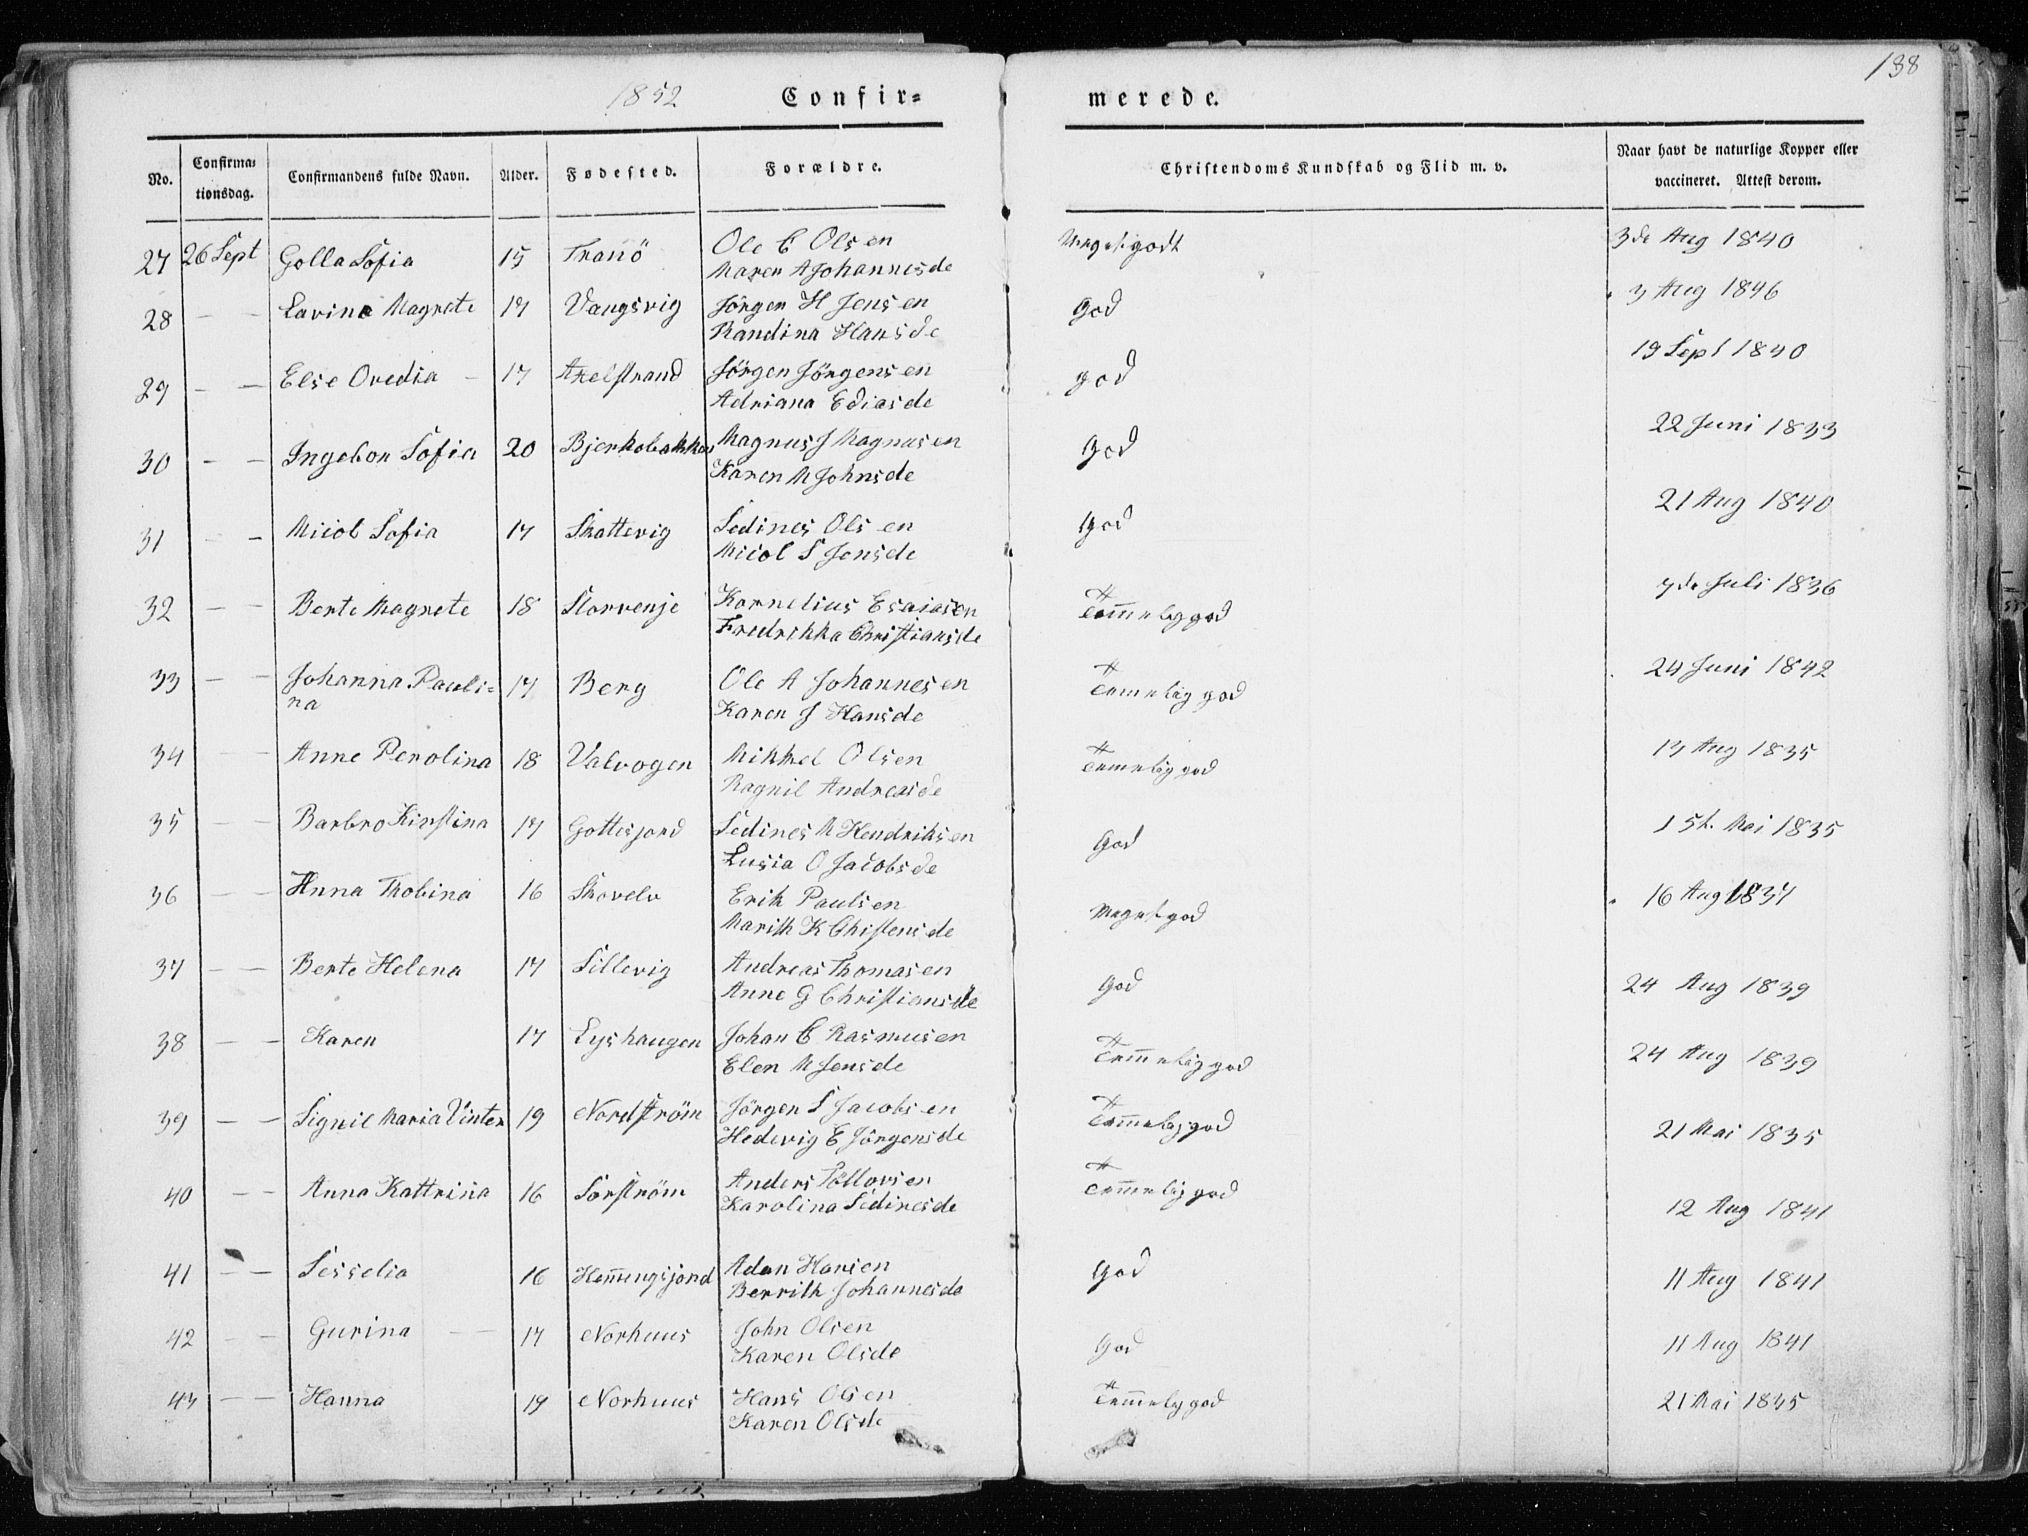 138
1852 Confir= merede.
No. Confirma= tionsdag. Confirmandens fulde Navn. Alder. Fødested. Forældre. Christendoms Kundskab og Flid m. v. Naar havt de naturlige Kopper eller vaccineret. Attest derom.
27 26 Sept Golla Sofia 15 Tranö Ole C Olsen Meget godt 3de Aug 1840
Maren A Johannesde
28 — — Lavina Magrete 17 Vangsvig Jörgen H Jensen God 3 Aug 1846
Randina Hansde
29 — — Else Ovedia 17 Axelstrand Jörgen Jörgensen god 19 Sept 1840
Adriana Ediasde
30 — — Ingebor Sofia 20 Bjerkebakken Magnus J Magnusen God 22 Juni 1833
Karen M Johnsde
31 — — Micol Sofia 17 Skattevig Sedines Olsen God 21 Aug 1840
Micol S Jensde
32 — — Berte Magrete 18 Storvenje Kornelius Esaiasen Temmelig god 7de Juli 1836
Fredrikka Christiansde
33 — — Johanna Pauli= 17 Berg Ole A Johannesen Temelig god 24 Juni 1842
na Karen J Hansde
34 — — Anne Perolina 18 Valvogen Mikkel Olsen Temelig god 13 Aug 1835
Ragnil Andreasde
35 — — Barbro Kirstina 17 Gottesjord Sedines M Hendriksen God 15t. Mai 1835
Lusia O Jacobsde
36 — — Anna Thobina 16 Skovelv Erik Paulsen Meget god 16 Aug 1837
Marith K Christensde
37 — — Berte Helena 17 Sillevig Andreas Thomasen God 24 Aug 1839
Anne G Christiansde
38 — — Karen 17 Lyshaugen Johan C Rasmusen Temmelig god 24 Aug 1839
Elen M Jensde
39 — — Signil Maria Vinter 19 Nordström Jörgen S Jacobsen Temmelig god 21 Mai 1835
Hedevig E Jörgensde
40 — — Anna Kattrina 16 Sörström Anders Söllovsen Temmelig god 12 Aug 1841
Karolina Sedinesde
41 — — Sesselia 16 Hemmingsjord Adan Hansen God 11 Aug 1841
Berrith Johannesde
42 — — Gurina 17 Norhuus John Olsen God 11 Aug 1841
Karen Olsde
43 — — Hanna 19 Norhuus Hans Olsen Temmelig god 21 Mai 1835
Karen Olsde